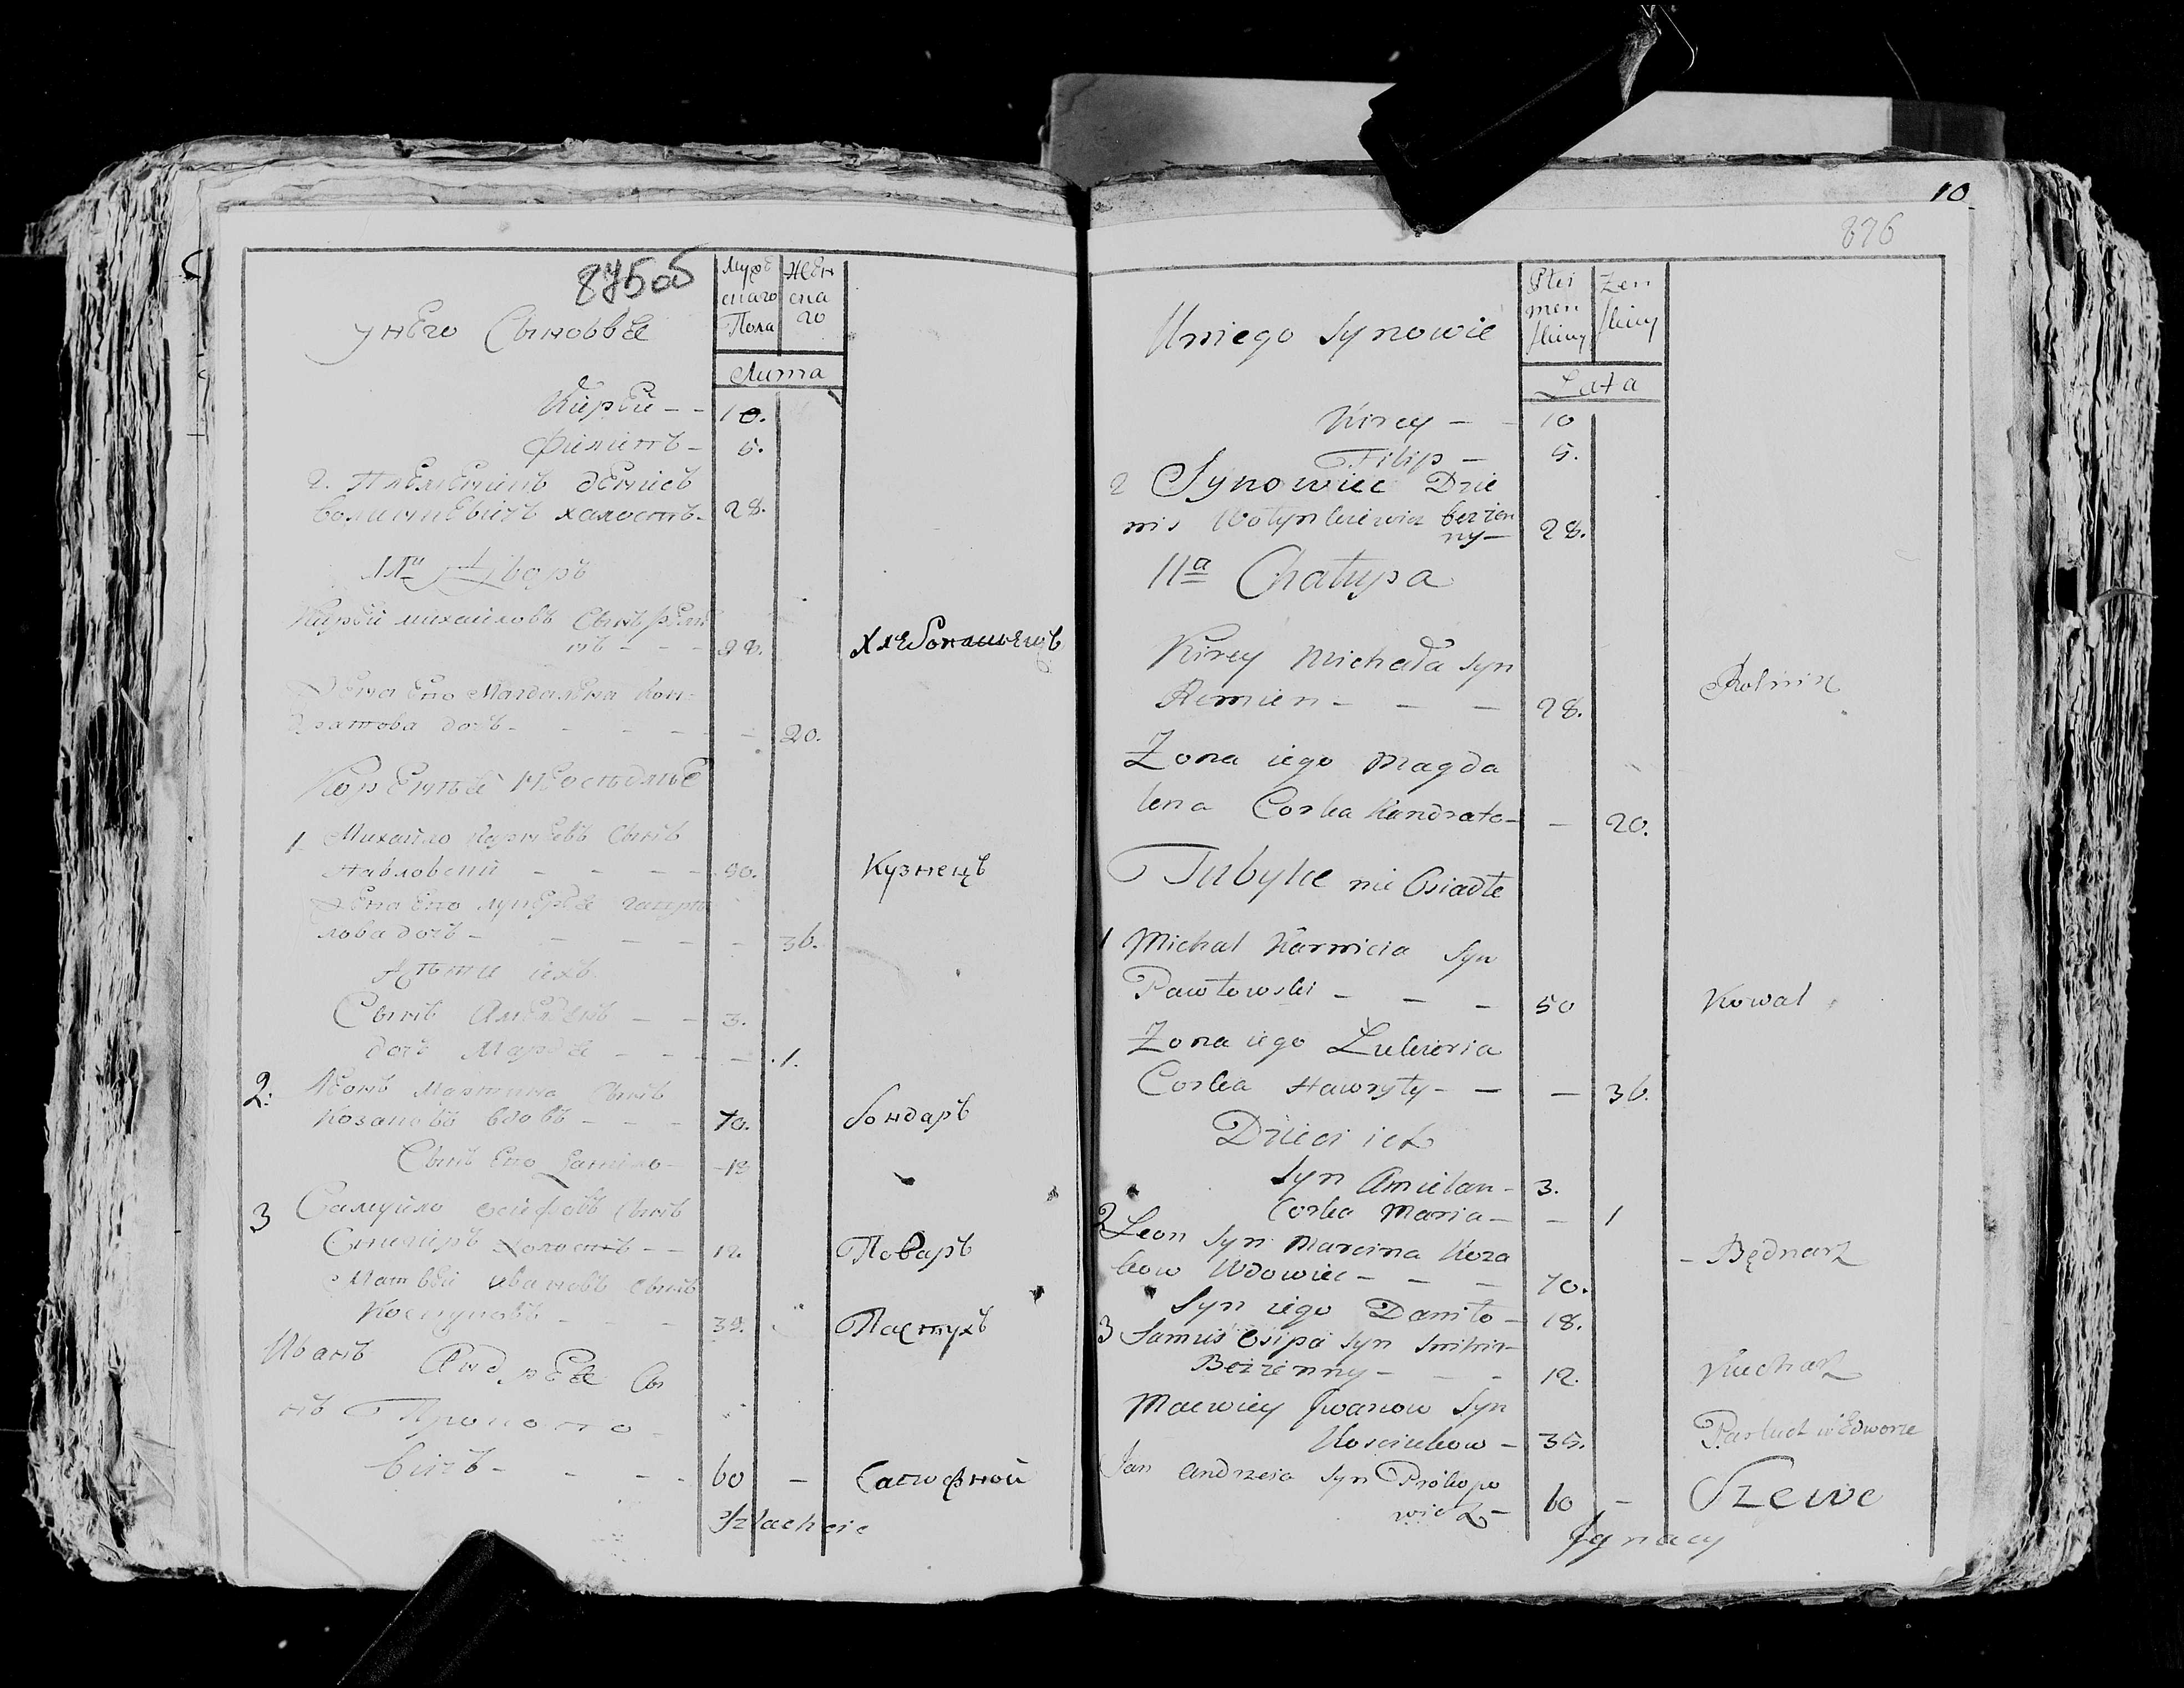 875об
Муже
скаго
Пола
Жен
ска
го
Лита
унего Сыновъе
Кирѣй - - 10.
Филипъ - 5.
2. Племѣникъ дениевъ
халостъ - 28.
11га Дворъ
Кирѣй михайловъ Сынъ Реме
нъ - - - 28. Хлебопашецъ
Жена Его Магдалена Кон-
дратова дочъ - - - - - 20.
1 Михайло Карнѣевъ Сынъ
Павловский - - - - 50. Кузнецъ
Жена Его лукерѣе гаври
лова дочъ - - - - - 36.
дѣти ихъ
Сынъ - - 3.
дочъ Марѣе - - - 1.
2. Леонъ Мартина Сынъ
Козаковъ вдовъ - - - 70. бондаръ
Сынъ Его Данило - 18
3 Самуйло осифовъ Сынъ
холостъ - - 12. Поваръ
Матвѣй Ивановъ Сынъ
- - - 35. Пастухъ
Иванъ Андрѣе Сы
нъ Прокопо
вичъ - - - - 60 - Сапожной
Szlachcic
10
876
Płci
men
skiey
Zen
skiey
Lata
Uniego Synowie
Kirey - - 10
Filip - 5.
2 Synowiec Dzie
nis Wołynkiewicz bezżen
ny - 28.
11a Chałupa
Kirey Michała Syn
Remien - - - 28. Rolnik
Zona iego Magda
lena Corka Kondrato - - 20.
Tubylce nie Osiadłe
1 Michał Karnieia Syn
Pawłowski - - - 50 Kowal
Zona iego Łukieria
Corka Hawryły - - - 36.
Dzieci ich
Syn Amielan - 3.
Corka Maria - - 1
2 Leon Syn Marcina Koza
kow Wdowiec - - - 70. - Będnarz
Syn iego Daniło - 18.
3 Samuś Osipa Syn
Bezzenny - - - 12. Kucharz
Maewiey Jwanow Syn
Kosciukow - 35. Pastuch w Dworze
Jan Andrzeia Syn Prokopo
wicz - 60 - Szewc
Jgnacy